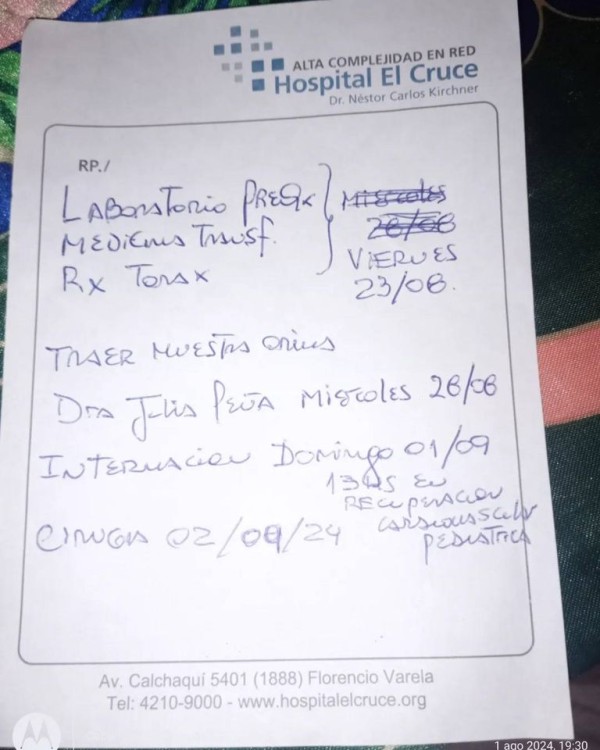 ALTA COMPLEJIDAD EN RED
Hospital El Cruce
Dr. Néstor Carlos Kirchner
RP./
LABORATORIO PREQX
MEDICINA TRANSF.
RX TORAX
MIERCOLES
28/08
VIERNES
23/08.
TRAER MUESTRA ORINA
DRA Julia PEÑA MIERCOLES 28/08
INTERNACION DOMINGO 01/09
13HS EN
RECUPERACION
CARDIOVASCULAR
PEDIATRICA
CIRUGIA 02/09/24
Av. Calchaquí 5401 (1888) Florencio Varela
Tel: 4210-9000 - www.hospitalelcruce.org
1 ago 2024, 19:30